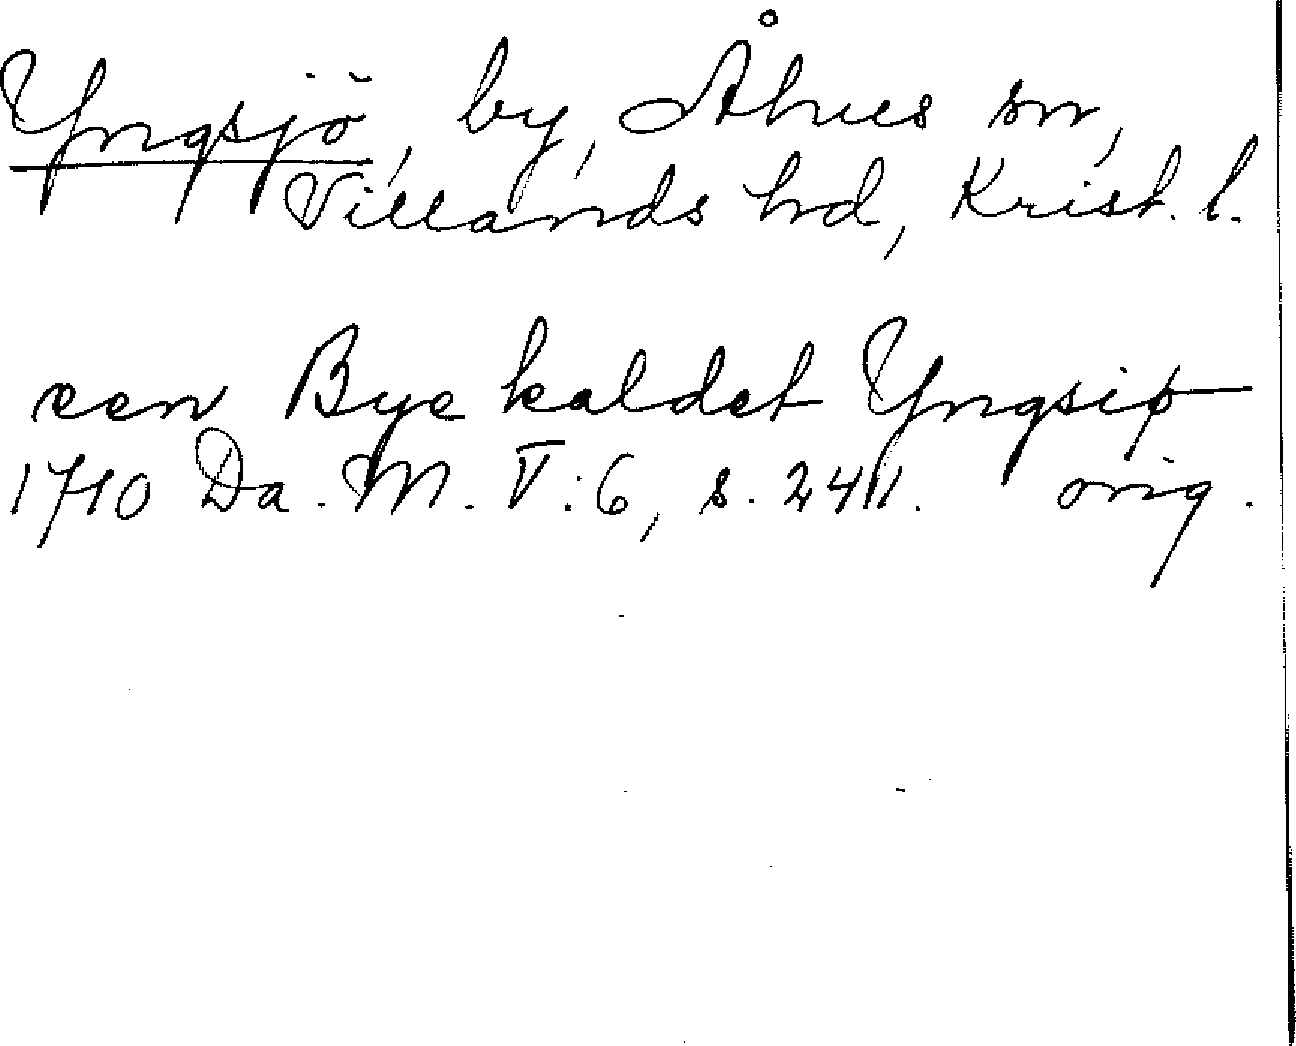 Yngsjö, by, Åhus sn,
Villands hd, Krist. l.
een Bye kaldet Yngsiø
1710 Da. M. V:6, s. 241. orig.